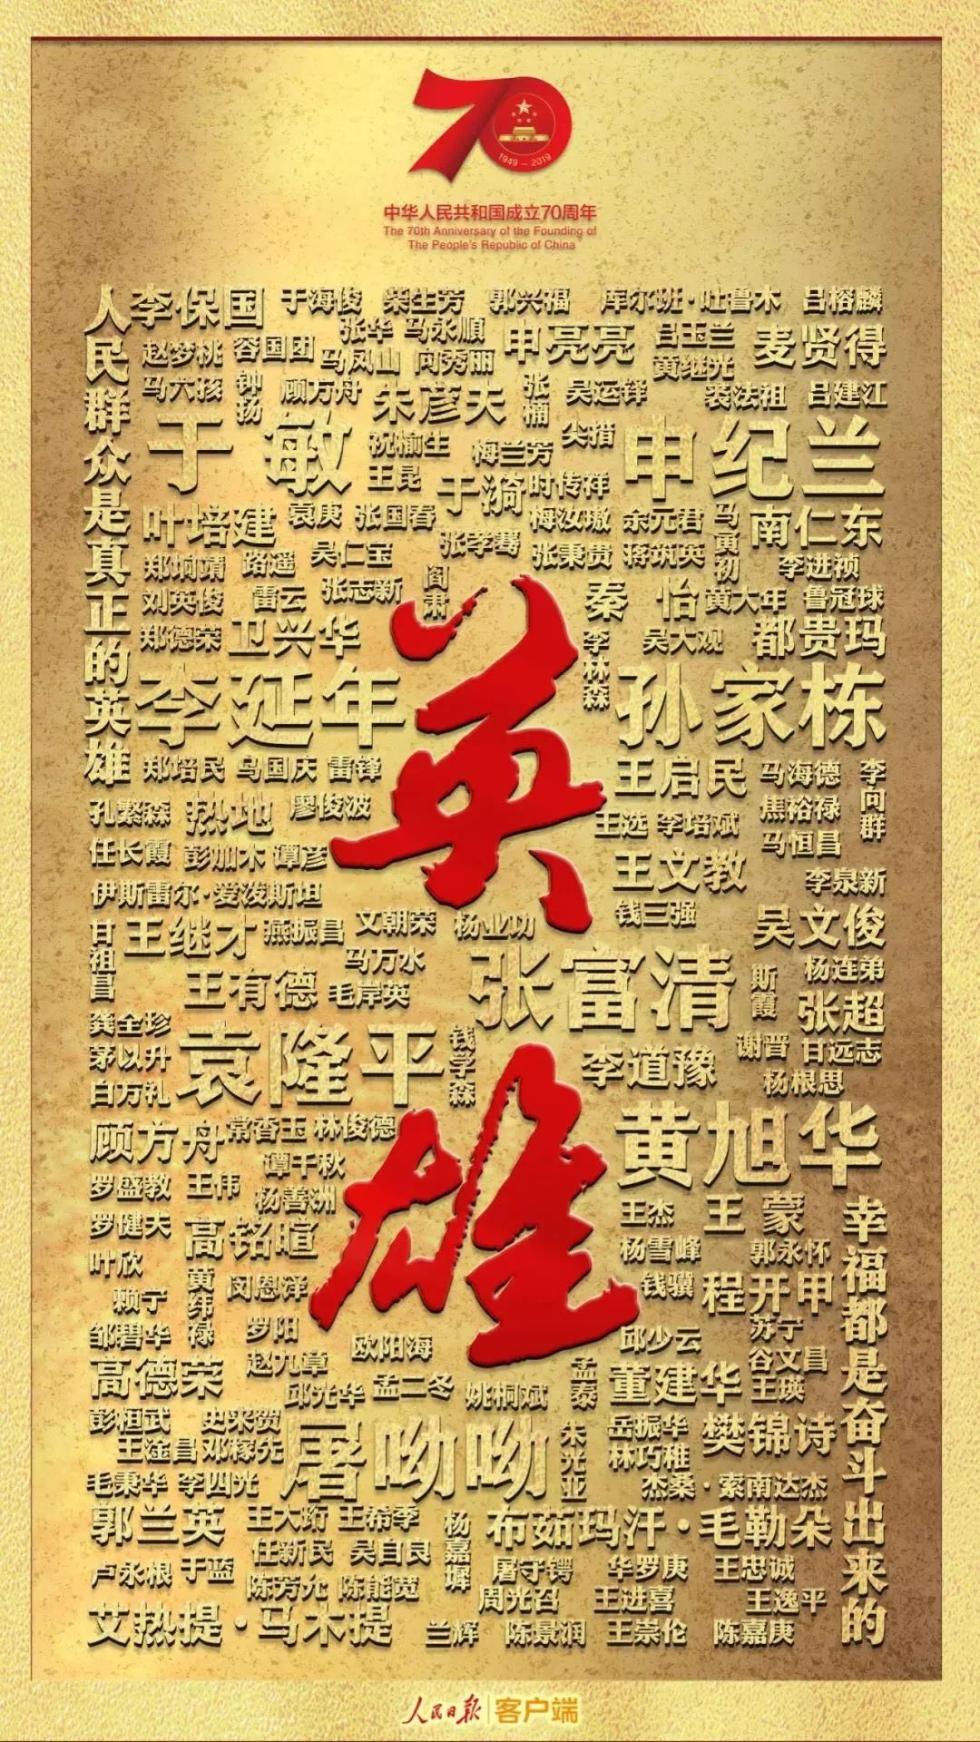 1949－2019
中华人民共和国成立70周年
The 70th Anniversary of the Founding of
The People's Republic of China
人民群众是真正的英雄
李保国 于海俊 柴生芳 郭兴福 库尔班·吐鲁木 吕榕麟
张华 马永顺 申亮亮 吕玉兰 麦贤得
赵梦桃 容国团 马凤山 向秀丽 黄继光
马六孩 钟扬 顾方舟 朱彦夫 张楠 吴运铎 裘法祖 吕建江
于敏 祝榆生 梅兰芳 尖措 申纪兰
王昆 于漪 时传祥
叶培建 袁庚 张国春 梅汝璈 余元君 马寅初 南仁东
郑垧靖 路遥 吴仁宝 张孝骞 张秉贵 蒋筑英 李进祯
刘英俊 雷云 张志新 阎肃 秦怡 黄大年 鲁冠球
郑德荣 卫兴华 李林森 吴大观 都贵玛
李延年 孙家栋
郑培民 马国庆 雷锋 王启民 马海德 李向群
孔繁森 热地 廖俊波 王选 李培斌 焦裕禄
任长霞 彭加木 谭彦 王文教 马恒昌
伊斯雷尔·爱泼斯坦 李泉新
甘祖昌 王继才 燕振昌 文朝荣 杨业功 钱三强 吴文俊
王有德 马万水 毛岸英 张富清 斯霞 杨连弟
龚全珍 张超
茅以升 袁隆平 钱学森 李道豫 谢晋 甘远志
白方礼 杨根思
英雄
顾方舟 常香玉 林俊德 黄旭华
谭千秋
罗盛教 王伟 杨善洲 王杰 王蒙
罗健夫 高铭暄 杨雪峰 郭永怀
叶欣 黄纬禄 闵恩泽 钱骥 程开甲
赖宁
邹碧华 罗阳 欧阳海 邱少云 苏宁
高德荣 赵九章 孟泰 董建华 谷文昌
邱光华 孟二冬 姚桐斌 王瑛
彭桓武 史来贺 屠呦呦 朱光亚 岳振华 樊锦诗
王淦昌 邓稼先 林巧稚
毛秉华 李四光 杰桑·索南达杰
郭兰英 王大珩 王希季 杨嘉墀 布茹玛汗·毛勒朵
任新民 吴自良
卢永根 于蓝 陈芳允 陈能宽 屠守锷 华罗庚 王忠诚
周光召 王进喜 王逸平
艾热提·马木提 兰辉 陈景润 王崇伦 陈嘉庚
幸福都是奋斗出来的
人民日报 客户端